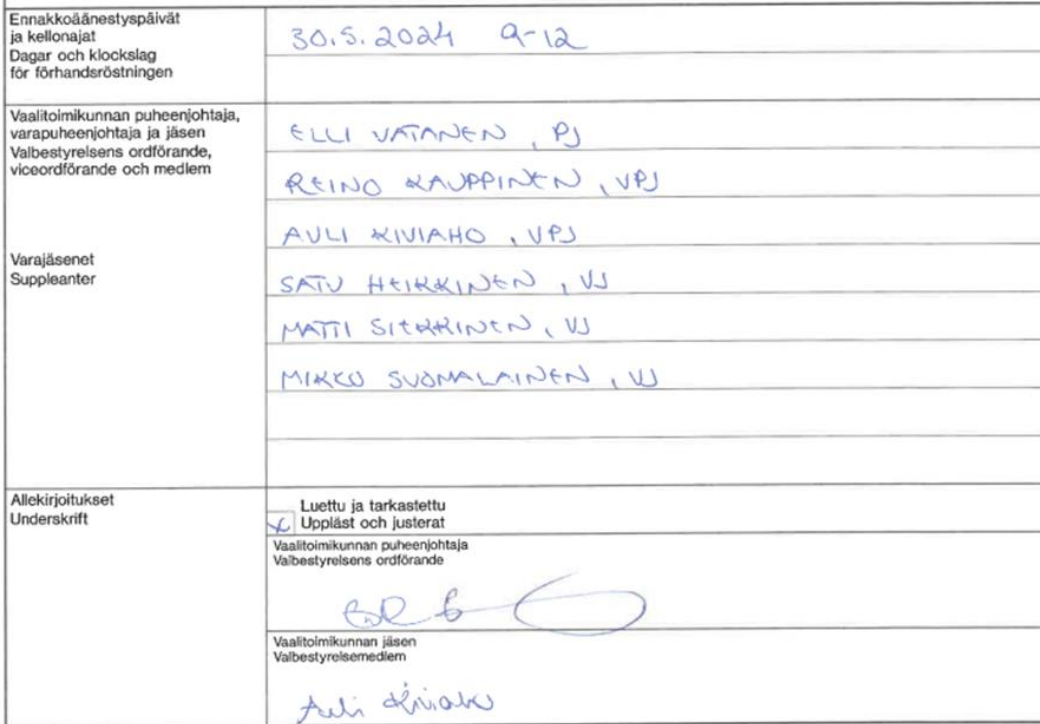 Ennakkoäänestyspäivät
ja kellonajat
Dagar och klockslag
för förhandsröstningen
30.5.2024 9-12
Vaalitoimikunnan puheenjohtaja,
varapuheenjohtaja ja jäsen
Valbestyrelsens ordförande,
viceordförande och medlem
ELLI VATANEN, PJ
REINO KAUPPINEN, VPJ
AULI KIVIAHO, VPJ
Varajäsenet
Suppleanter
SATU HEIKKINEN, VJ
MATTI SIEKKINEN, VJ
MIKKO SUOMALAINEN, VJ
Allekirjoitukset
Underskrift
Luettu ja tarkastettu
x Uppläst och justerat
Vaalitoimikunnan puheenjohtaja
Valbestyrelsens ordförande
Vaalitoimikunnan jäsen
Valbestyrelsemedlem
Auli Kiviaho